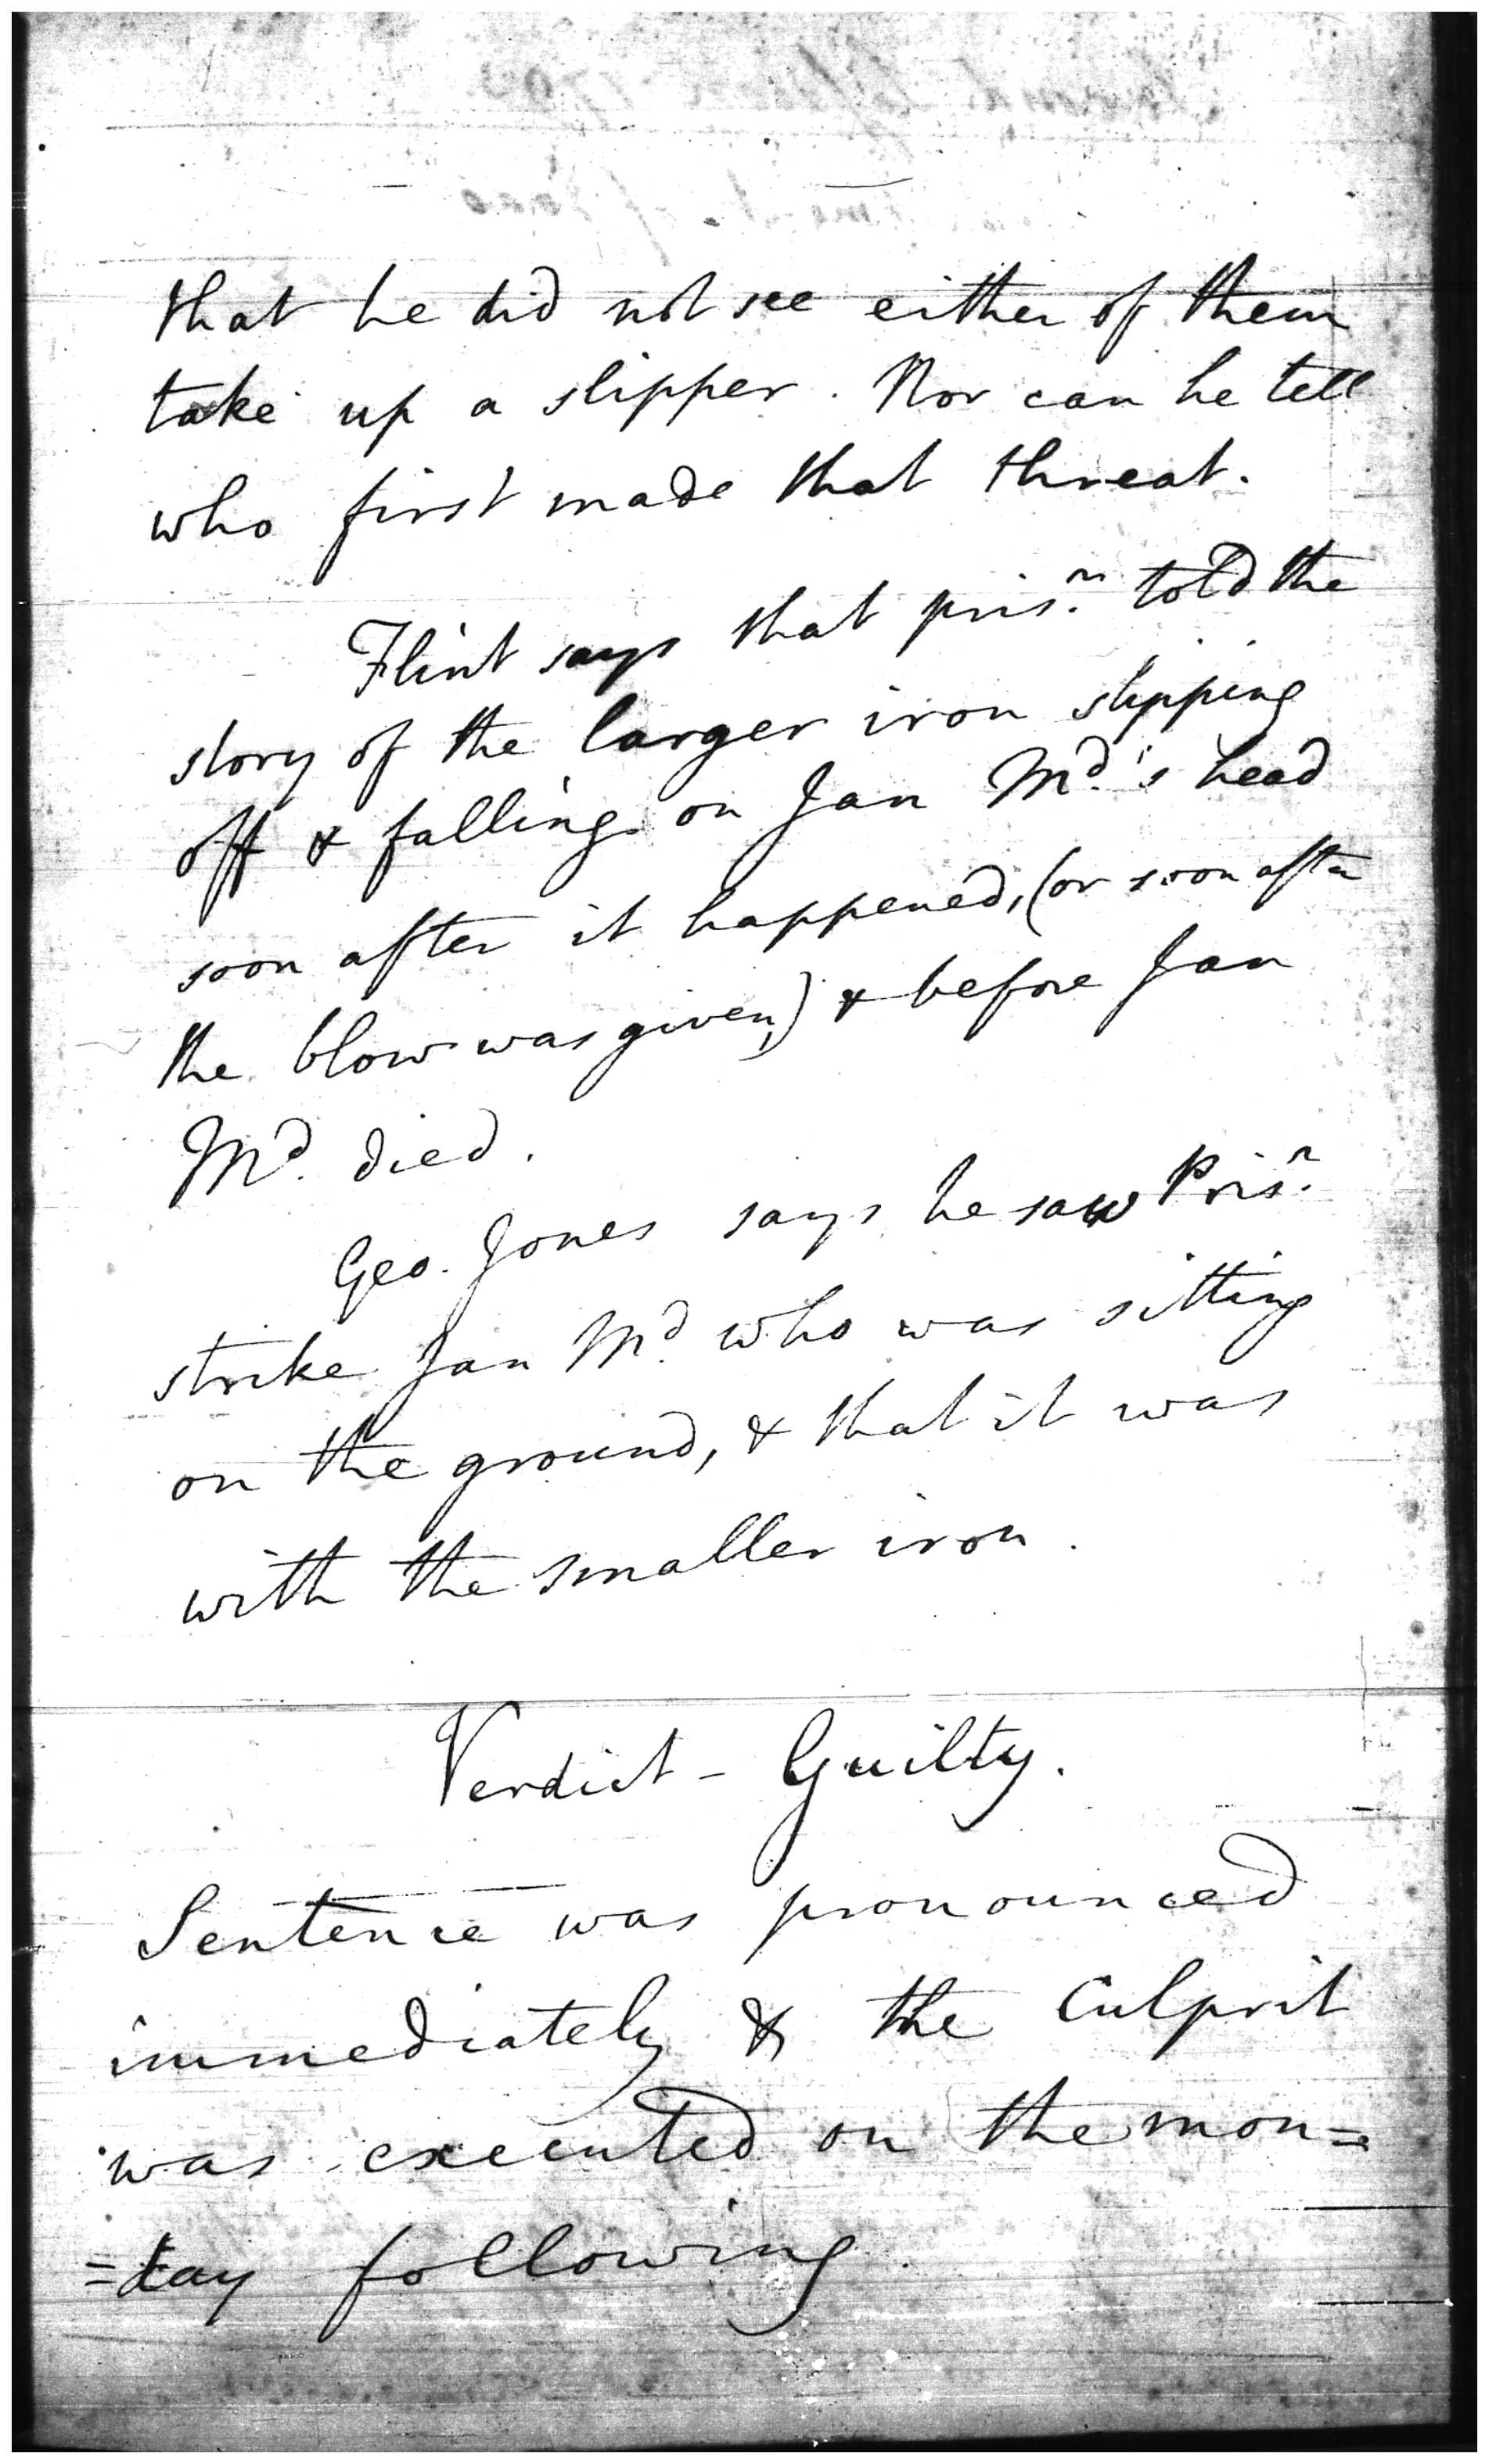 that he did not see either of them
take up a slipper. Nor can he tell
who first made that threat.
Flint says that pris.^r told the
story of the larger iron slipping
off & falling on Jan M^d.'s head
soon after it happened, (or soon after
the blow was given,) & before Jan
M^d. died.
Geo. Jones says he saw Pris.^r
strike Jan M^d. who was sitting
on the ground, & that it was
with the smaller iron.
Verdict - Guilty.
Sentence was pronounced
immediately & the Culprit
was executed on the mon=
=day following.